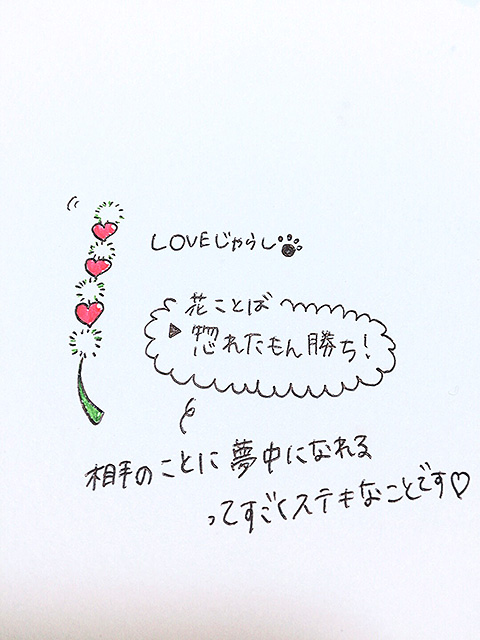 LOVEじゃらし
花ことば
▶惚れたもん勝ち!
相手のことに夢中になれる
ってすごくステキなことです♡